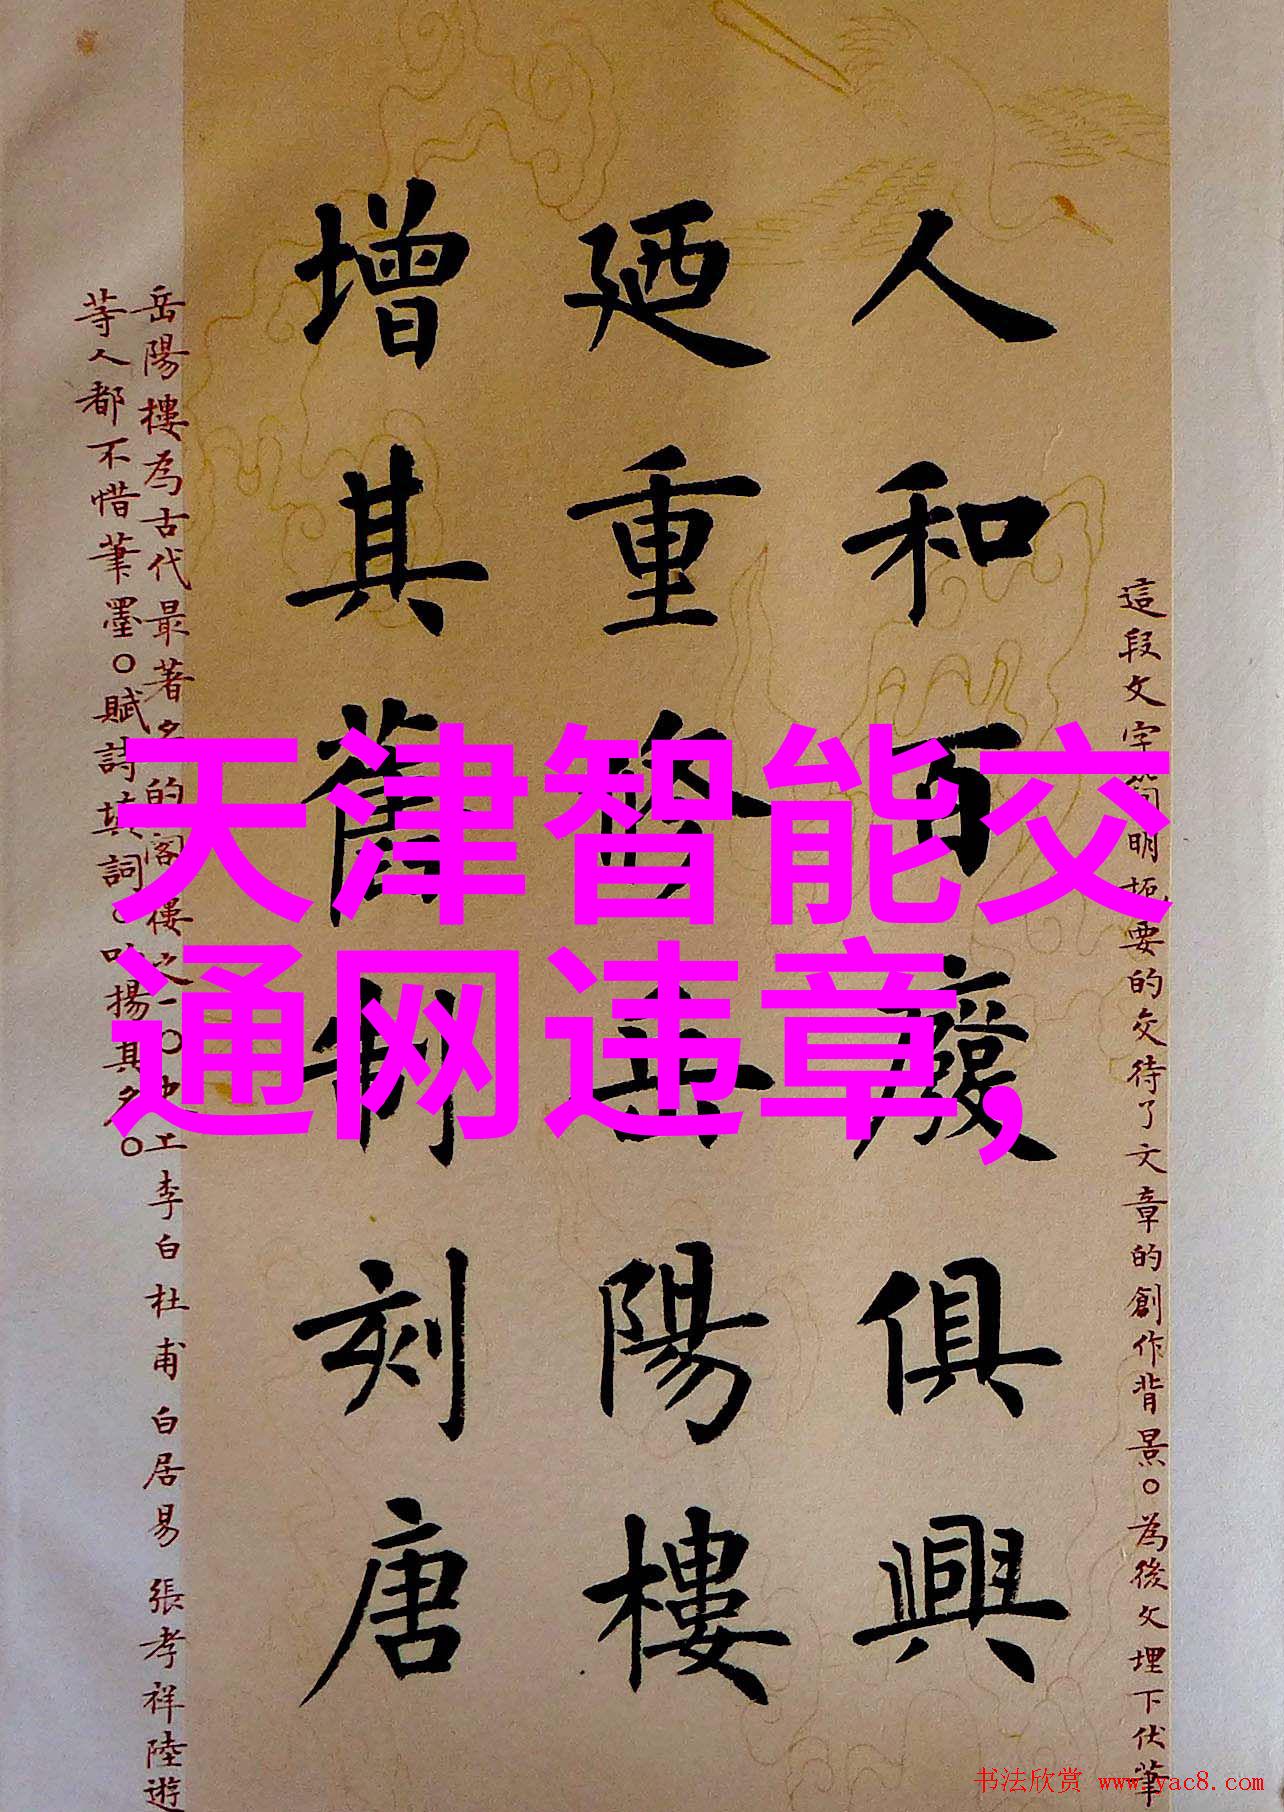 天津智能交
通网违章,
這段文字簡明扼要的交待了文章的創作背景。為後文埋下伏筆
人和百廢俱興
廼重修岳陽樓
增其舊制刻唐
岳陽樓為古代最著名的閣樓之一。史上李白杜甫白居易張孝祥陸遊
等人都不惜筆墨。賦詩填詞。揚其名。
书法欣赏 www.yac8.com